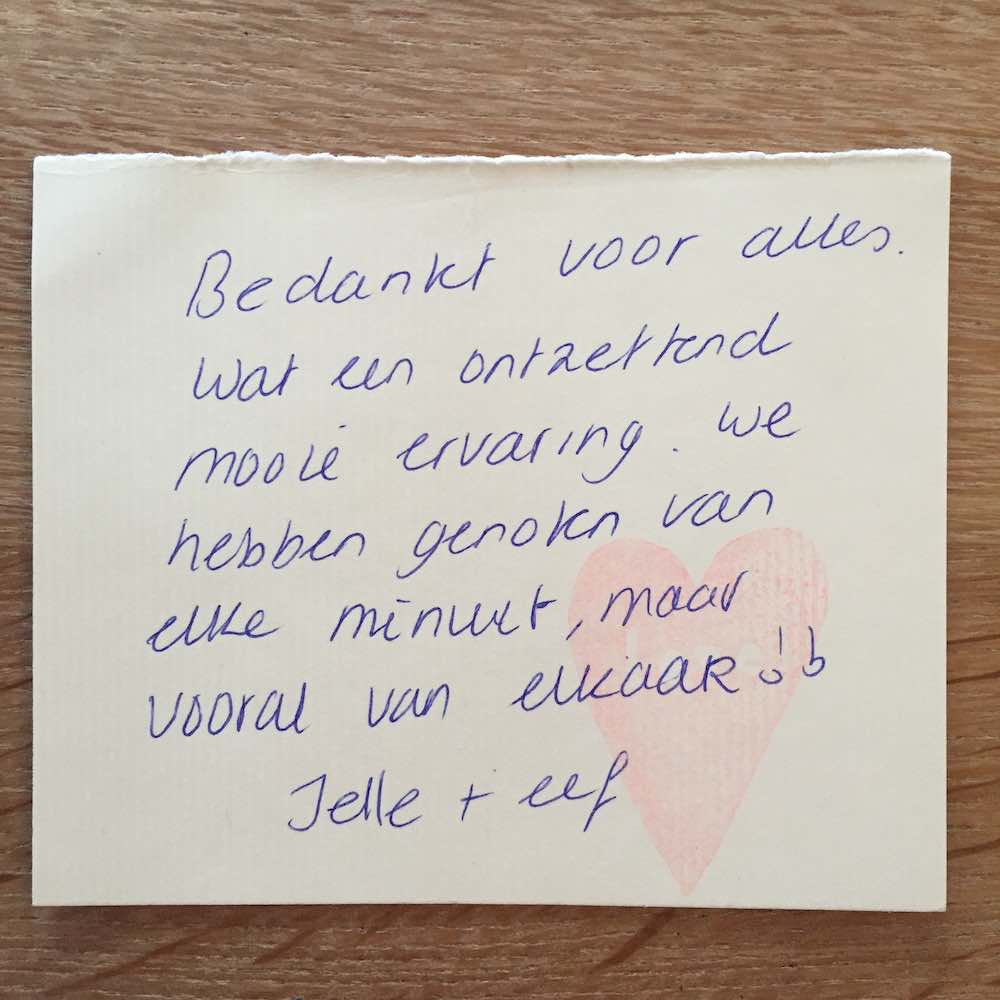 Bedankt voor alles.
Wat een ontzettend
mooie ervaring. We
hebben genoten van
elke minuut, maar
vooral van elkaar!!
Jelle + eef